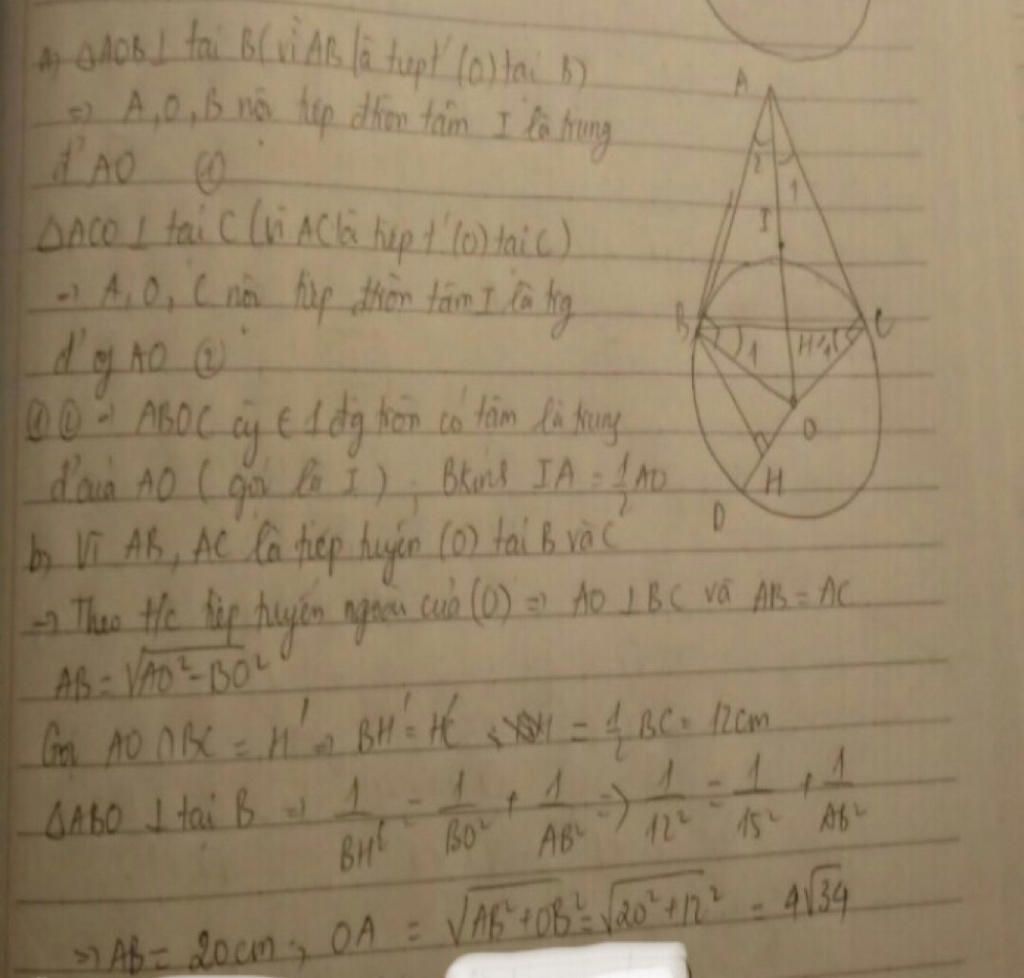 a) ΔAOB ⊥ tại B (vì AB là tiếp t' (O) tại B)
=> A, O, B nội tiếp đtròn tâm I là trung
đ' AO ①
ΔACO ⊥ tại C (vì AC là tiếp t' (O) tại C)
=> A, O, C nội tiếp đtròn tâm I là trg
đ' of AO ②
① ② => ABOC cùg ∈ 1 đtg tròn có tâm là trung
đ' của AO (gọi là I), Bkính IA = 1/2 AO
b) Vì AB, AC là tiếp tuyến (O) tại B và C
=> Theo t/c tiếp tuyến ngoài của (O) => AO ⊥ BC và AB = AC
AB = √(AO² - BO²)
Gọi AO ∩ BC = H' => BH' = H'C = 1/2 BC = 12cm
ΔABO ⊥ tại B => 1/BH'² = 1/BO² + 1/AB² => 1/12² = 1/15² + 1/AB²
=> AB = 20cm, OA = √(AB² + OB²) = √(20² + 12²) = 4√34
A
2 1
I
B 1 H' 1 C
O
H
D